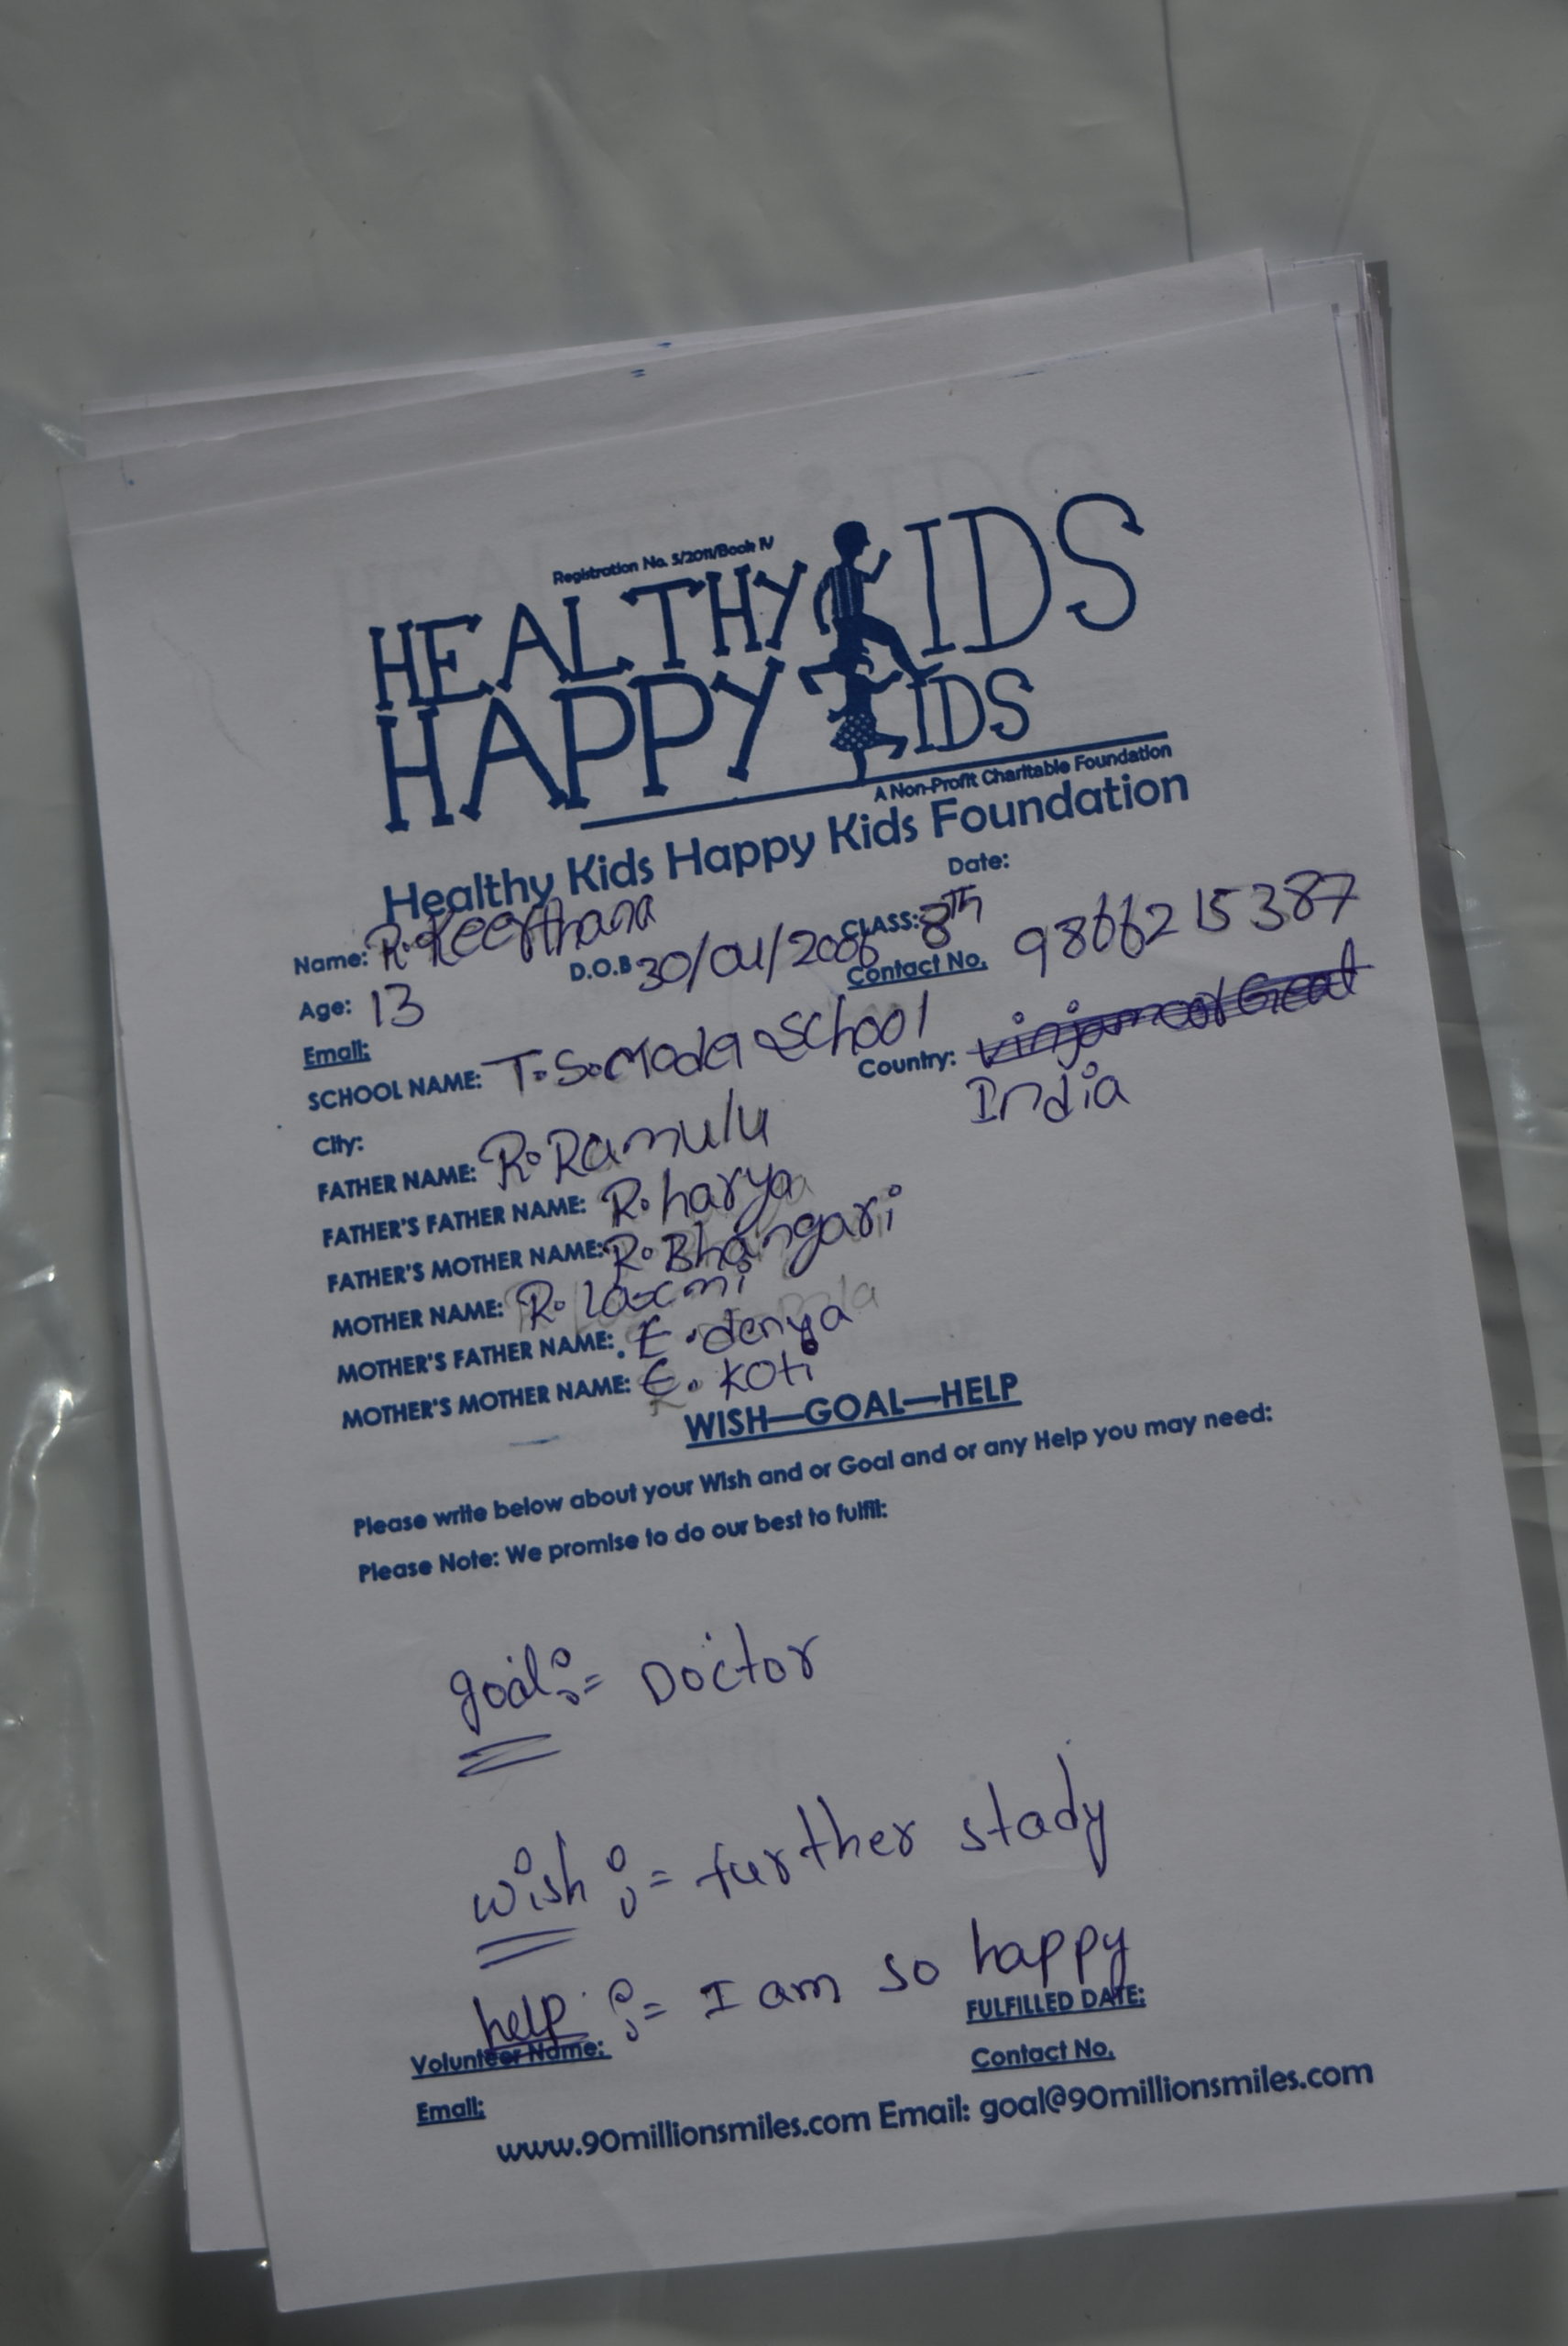 Registration No. 5/2011/Book IV
HEALTHY KIDS
HAPPY KIDS
A Non-Profit Charitable Foundation
Healthy Kids Happy Kids Foundation
Date:
Name: R. Keerthana CLASS: 8th
Age: 13 D.O.B 30/04/2006 Contact No. 9866215387
Email:
SCHOOL NAME: T.S. Model School Country:
India
City:
FATHER NAME: R. Ramulu
FATHER'S FATHER NAME: R. harya
FATHER'S MOTHER NAME: R. Bhangari
MOTHER NAME: R. laxmi
MOTHER'S FATHER NAME: E. denya
MOTHER'S MOTHER NAME: E. Koti
WISH—GOAL—HELP
Please write below about your Wish and or Goal and or any Help you may need:
Please Note: We promise to do our best to fulfil:
goal:= Doctor
wish:= further stady
help:= I am so happy
FULFILLED DATE:
Volunteer Name:
Contact No.
Email:
www.90millionsmiles.com Email: goal@90millionsmiles.com